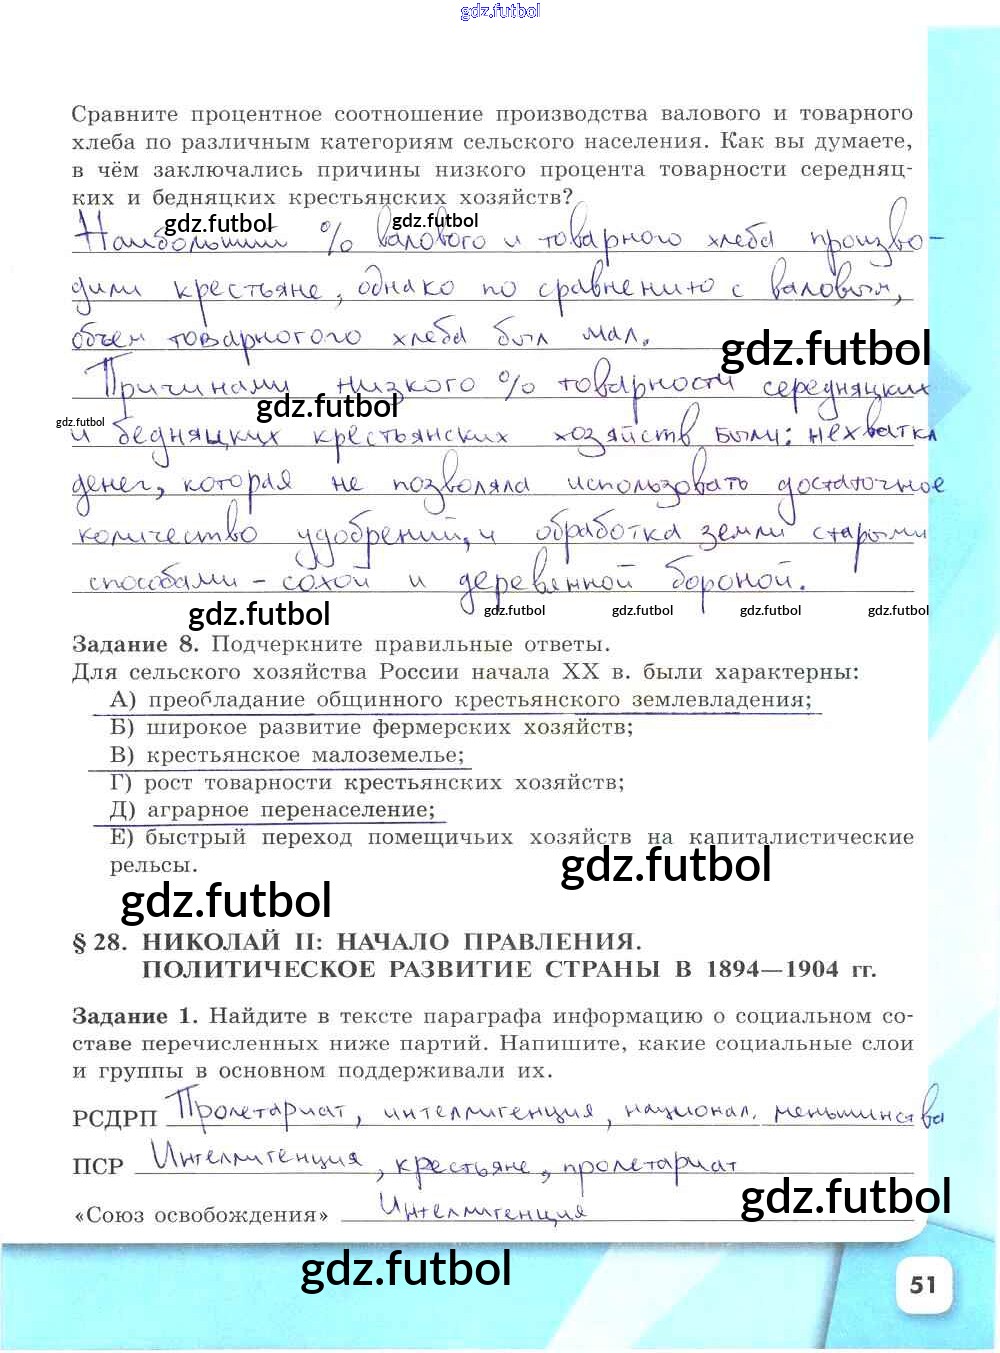 gdz.futbol
Сравните процентное соотношение производства валового и товарного
хлеба по различным категориям сельского населения. Как вы думаете,
в чём заключались причины низкого процента товарности середняц-
ких и бедняцких крестьянских хозяйств?
gdz.futbol gdz.futbol
Наибольший % валового и товарного хлеба произво-
дили крестьяне, однако по сравнению с валовым,
объем товарногого хлеба был мал.
gdz.futbol
Причинами низкого % товарности середняцких
gdz.futbol gdz.futbol
и бедняцких крестьянских хозяйств были: нехватка
денег, которая не позволяла использовать достаточное
количество удобрений, и обработка земли старыми
способами - сохой и деревенной бороной.
gdz.futbol gdz.futbol gdz.futbol gdz.futbol gdz.futbol
Задание 8. Подчеркните правильные ответы.
Для сельского хозяйства России начала XX в. были характерны:
А) преобладание общинного крестьянского землевладения;
Б) широкое развитие фермерских хозяйств;
В) крестьянское малоземелье;
Г) рост товарности крестьянских хозяйств;
Д) аграрное перенаселение;
Е) быстрый переход помещичьих хозяйств на капиталистические
рельсы.
gdz.futbol
gdz.futbol
§ 28. НИКОЛАЙ II: НАЧАЛО ПРАВЛЕНИЯ.
ПОЛИТИЧЕСКОЕ РАЗВИТИЕ СТРАНЫ В 1894—1904 гг.
Задание 1. Найдите в тексте параграфа информацию о социальном со-
ставе перечисленных ниже партий. Напишите, какие социальные слои
и группы в основном поддерживали их.
РСДРП Пролетариат, интеллигенция, национал. меньшинства
ПСР Интеллигенция, крестьяне, пролетариат
gdz.futbol
«Союз освобождения» Интеллигенция
gdz.futbol
51